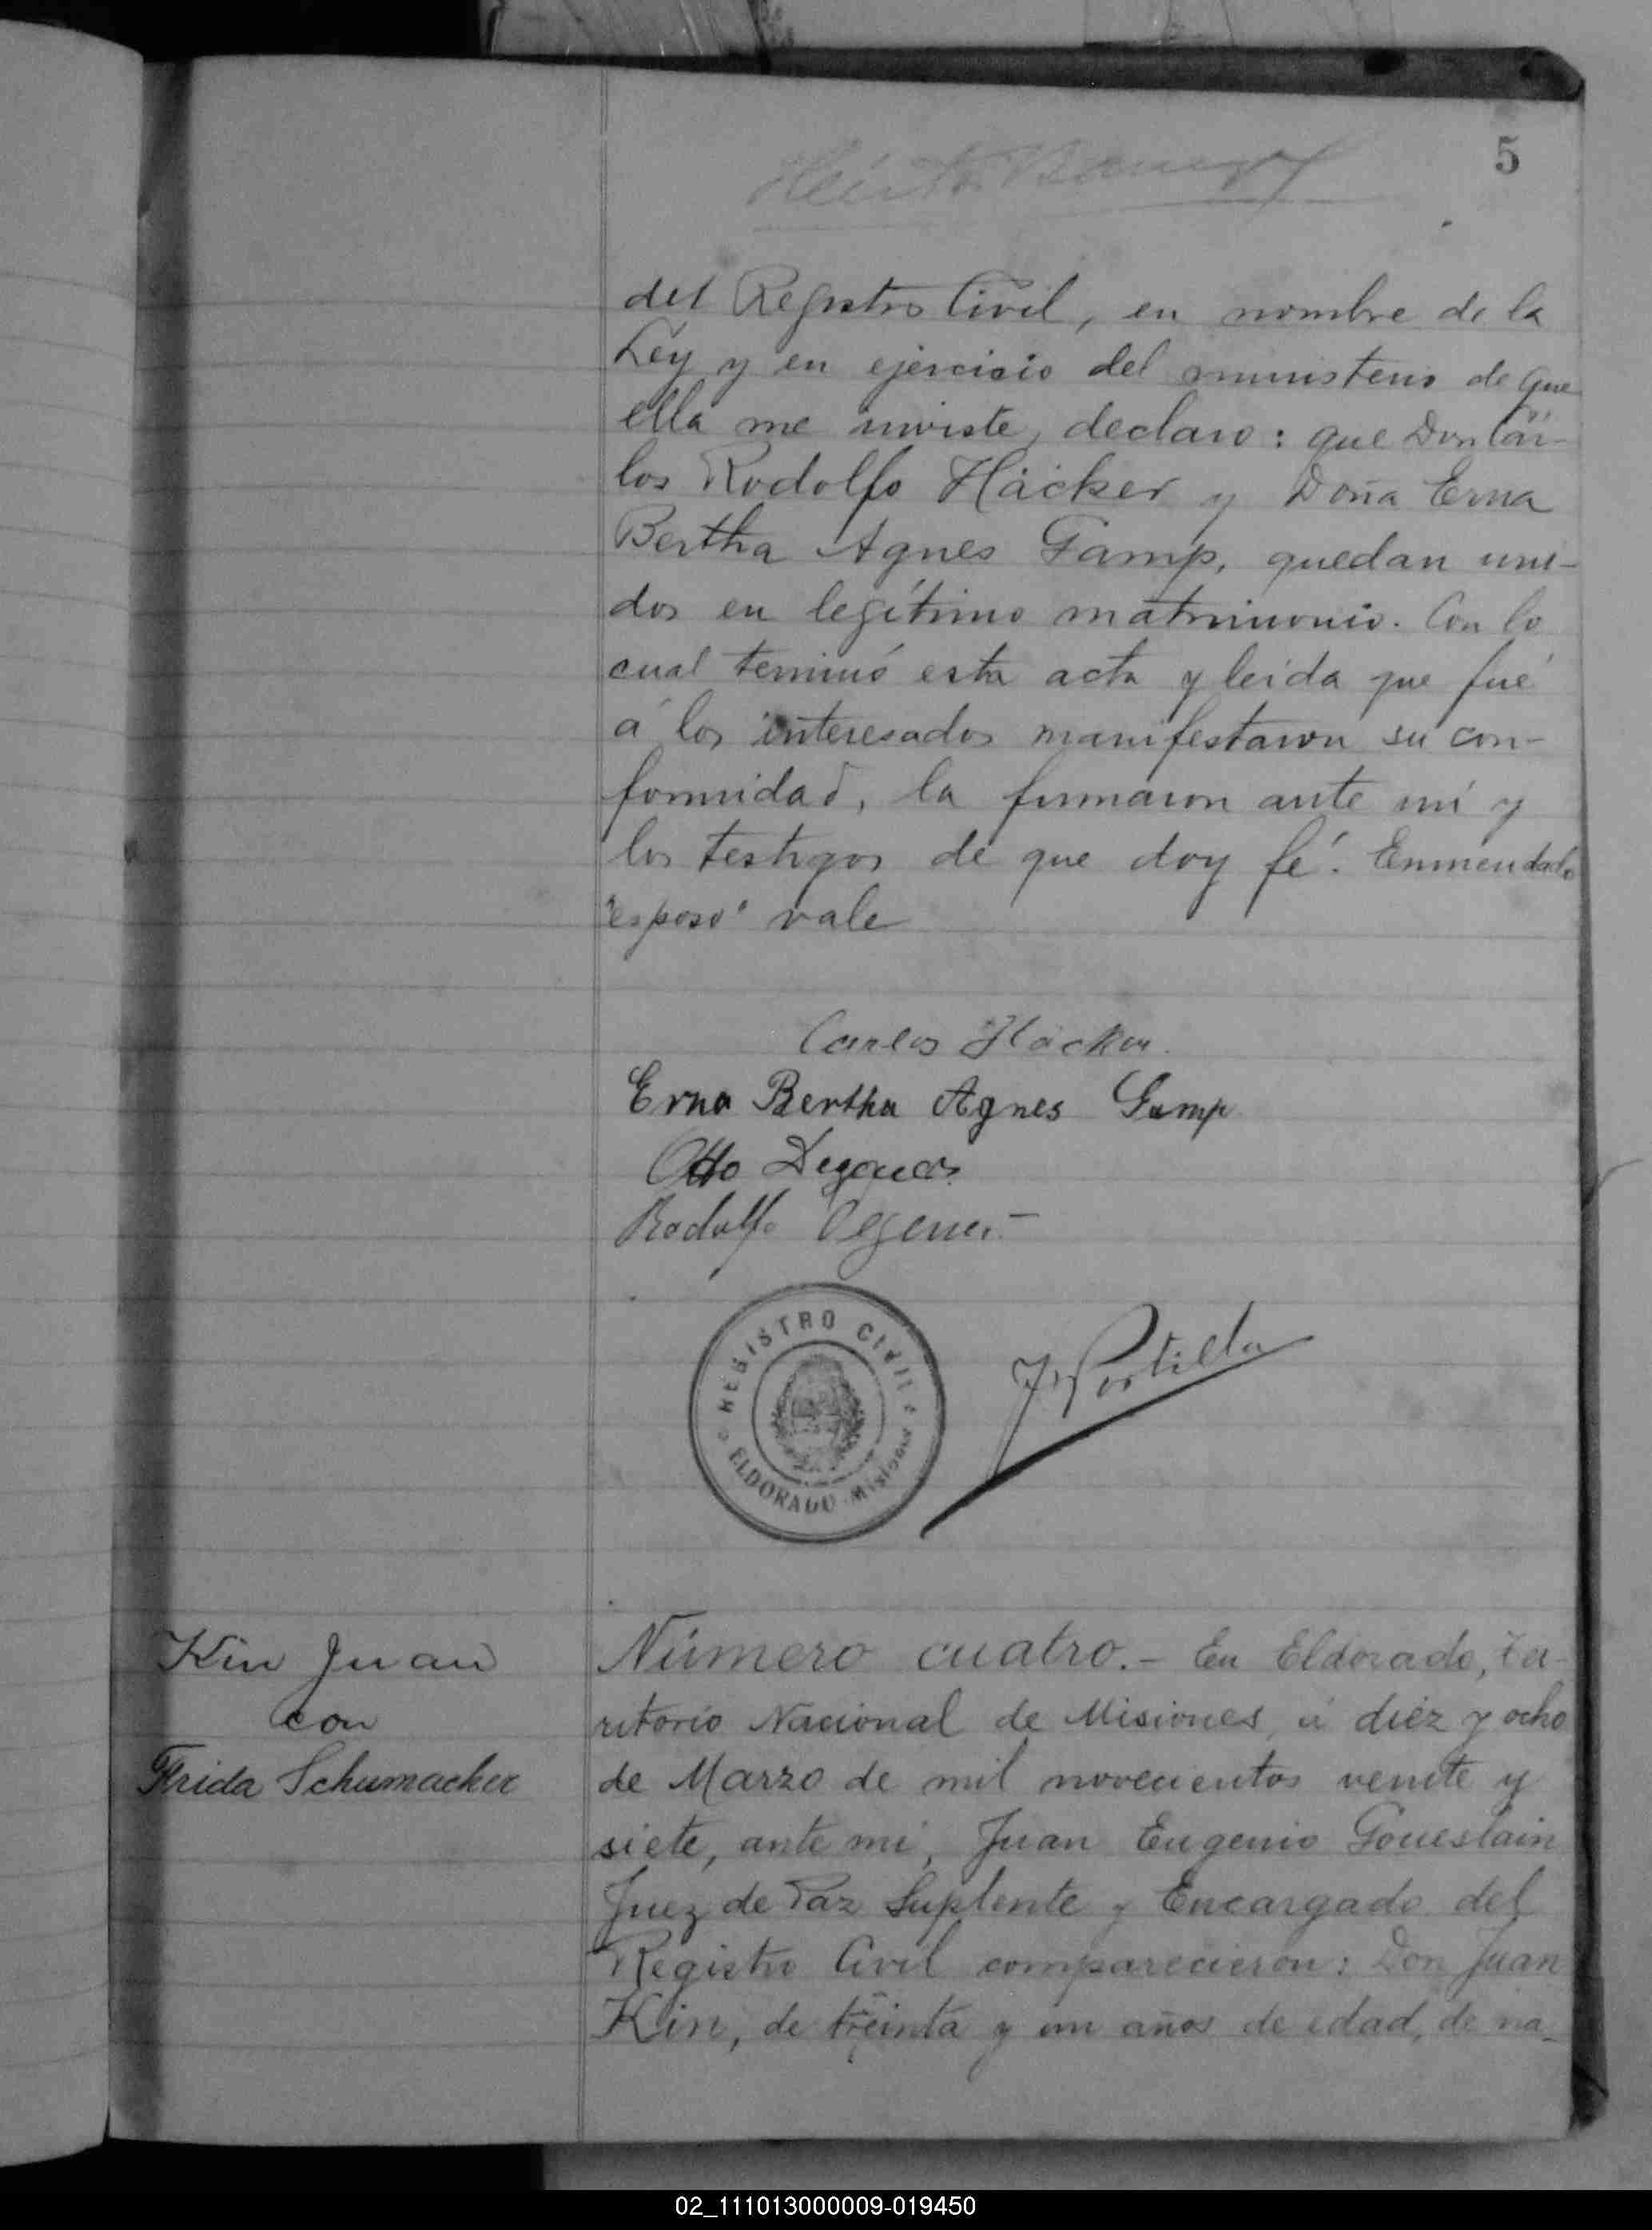 5
del Registro Civil, en nombre de la
Ley y en ejercicio del ministerio de que
ella me inviste, declaro: que Don Cár-
los Rodolfo Häcker y Doña Erna
Bertha Agnes Gamp, quedan uni-
dos en legítimo matrimonio. Con lo
cual terminó esta acta y leída que fué
á los interesados manifestaron su con-
formidad, la firmaron ante mí y
los testigos de que doy fé. Enmendado
"esposo" vale
Carlos Häcker
Erna Bertha Agnes Gamp
Otto
Rodolfo Degener
REGISTRO CIVIL
ELDORADO Misiones
J. Portilla
Kin Juan
con
Frida Schumacker
Número cuatro.- En Eldorado, Ter-
ritorio Nacional de Misiones, á diéz y ocho
de Marzo de mil novecientos veinte y
siete, ante mí, Juan Eugenio Goueslain
Juez de Paz Suplente y Encargado del
Registro Civil comparecieron: Don Juan
Kin, de treinta y un años de edad, de na-
02_111013000009-019450